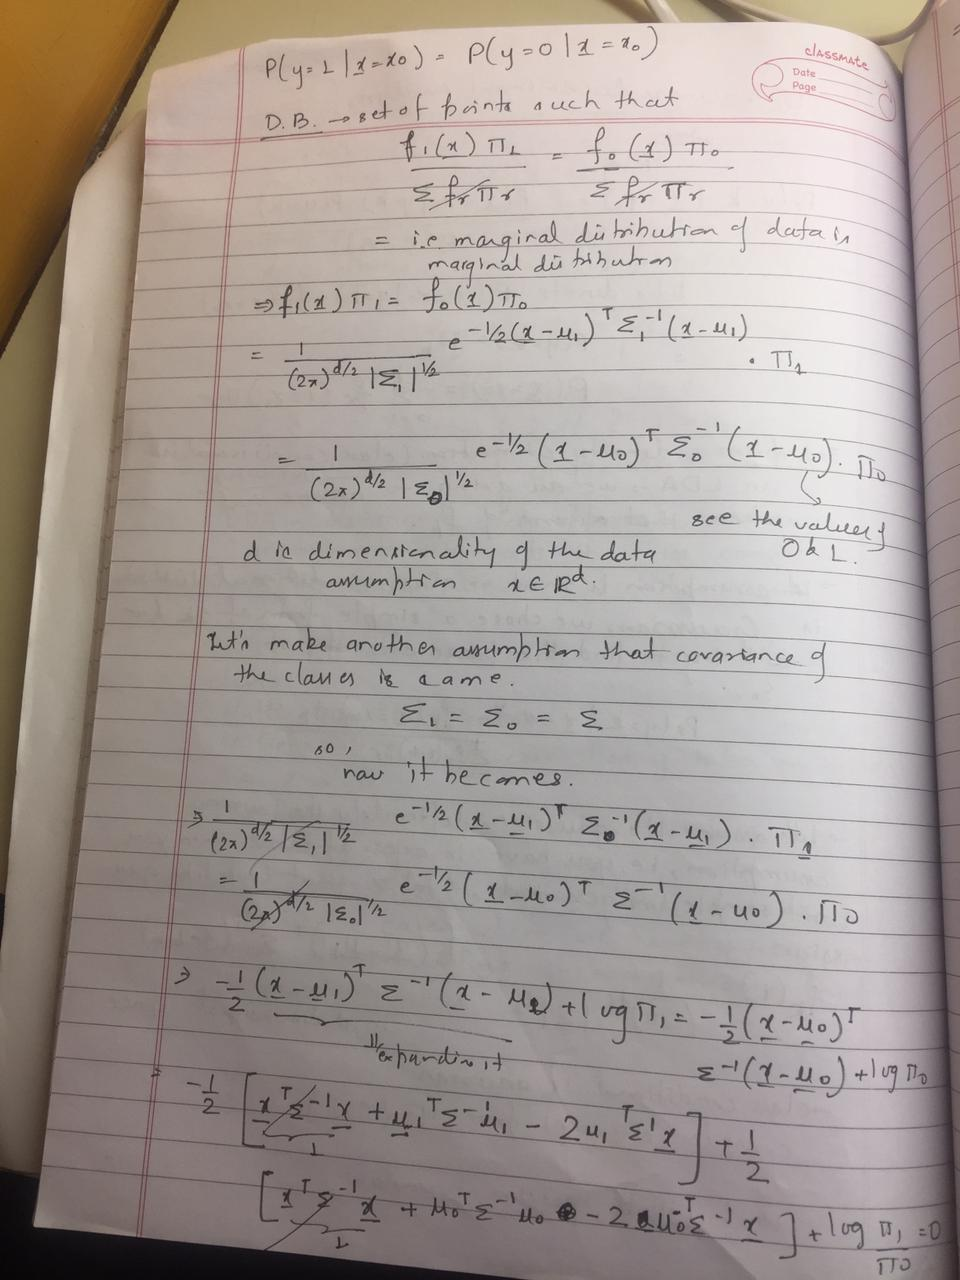 classmate
Date
Page
P(y=1 | x=x0) = P(y=0 | x=x0)
D.B. → set of points such that
f1(x) π1 / Σ fr πr = f0(x) π0 / Σ fr πr
= i.e marginal distribution of data is
marginal distribution
⇒ f1(x) π1 = f0(x) π0
= 1 / (2π)^d/2 |Σ1|^1/2 e^-1/2 (x-μ1)^T Σ1^-1 (x-μ1) . π1
= 1 / (2π)^d/2 |Σ0|^1/2 e^-1/2 (x-μ0)^T Σ0^-1 (x-μ0) . π0
see the values of
0 & 1.
d is dimensionality of the data
assumption x ∈ R^d.
Let's make another assumption that covariance of
the classes is same.
Σ1 = Σ0 = Σ
so,
now it becomes.
⇒ 1 / (2π)^d/2 |Σ1|^1/2 e^-1/2 (x-μ1)^T Σ^-1 (x-μ1) . π1
= 1 / (2π)^d/2 |Σ0|^1/2 e^-1/2 (x-μ0)^T Σ^-1 (x-μ0) . π0
⇒ -1/2 (x-μ1)^T Σ^-1 (x-μ1) + log π1 = -1/2 (x-μ0)^T
Σ^-1 (x-μ0) + log π0
expanding it
-1/2 [x^T Σ^-1 x + μ1^T Σ^-1 μ1 - 2μ1^T Σ^-1 x] + 1/2
[x^T Σ^-1 x + μ0^T Σ^-1 μ0 - 2μ0^T Σ^-1 x] + log π1/π0 = 0